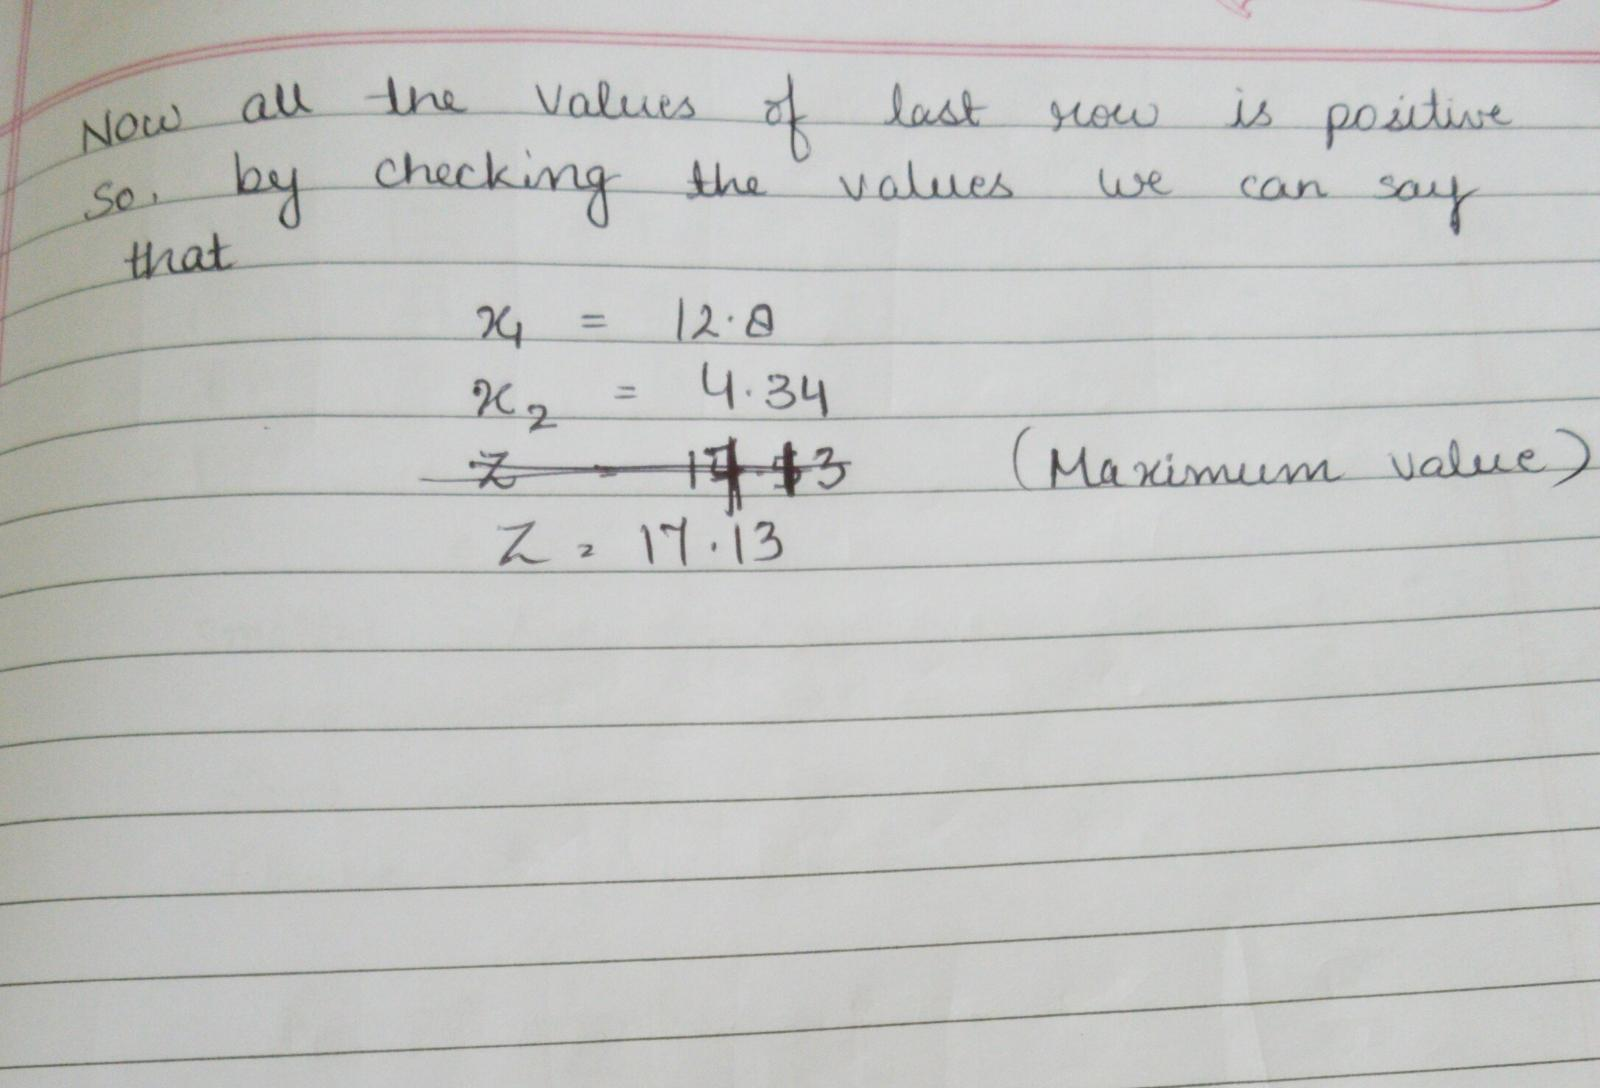 Now all the values of last row is positive
so, by checking the values we can say
that
x₁ = 12.8
x₂ = 4.34
(Maximum value)
Z = 17.13